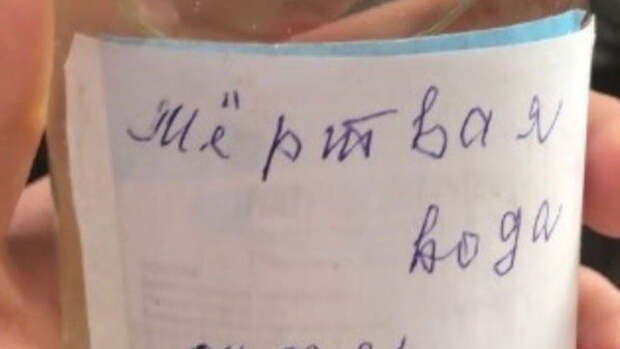 Мёртвая
вода